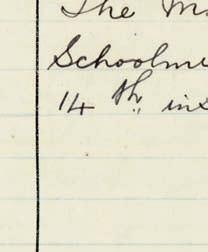 The M
Schoolm
14th ins